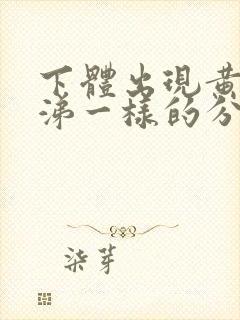 下體出現黃
涕一樣的分
柒芽